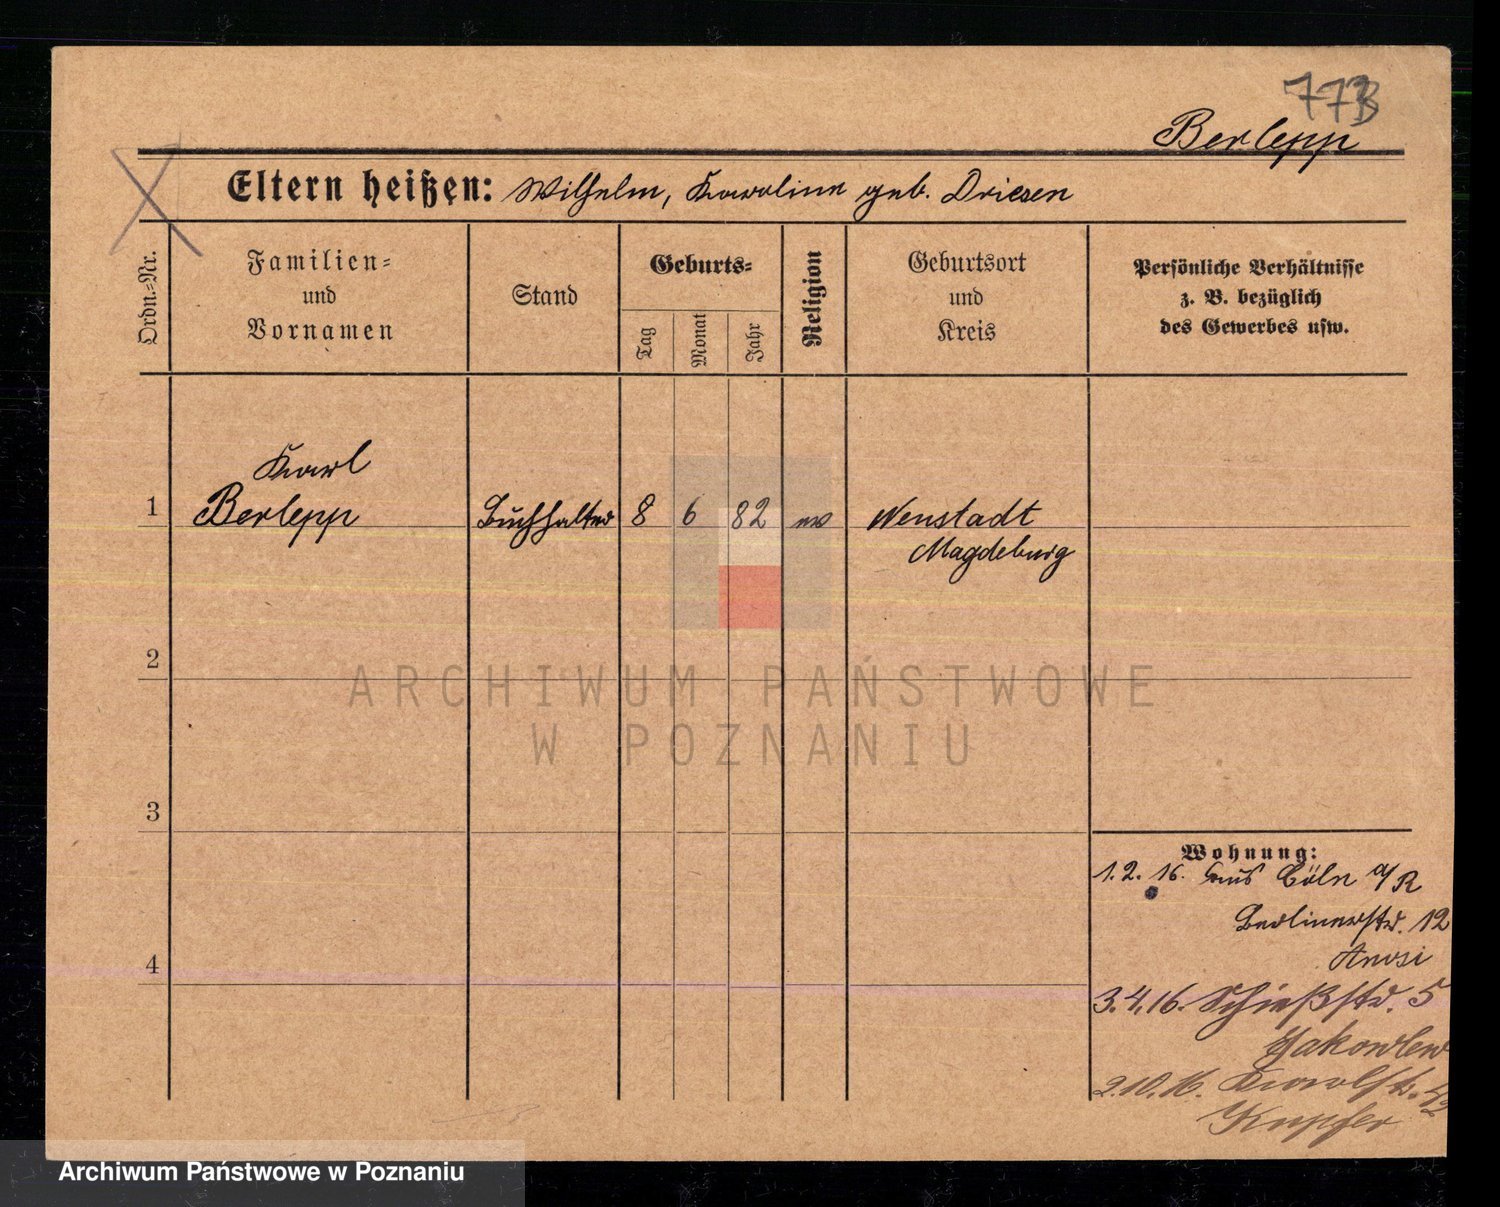 773
Berlepp
Eltern heißen: Wilhelm, Karoline geb. Driesen
Ordn.-Nr.
Familien-
und
Vornamen
Stand
Geburts-
Tag
Monat
Jahr
Religion
Geburtsort
und
Kreis
Persönliche Verhältnisse
z. B. bezüglich
des Gewerbes usw.
Karl
1 Berlepp Buchhalter 8 6 82 ev Neustadt
Magdeburg
2
3
4
Wohnung:
1.2.16. aus Cöln a/R
Berlinerstr. 12
3.4.16. Schießstr. 5
Jakowlew
2.10.16. Karolstr.
Kupfer
ARCHIWUM PAŃSTWOWE
W POZNANIU
Archiwum Państwowe w Poznaniu